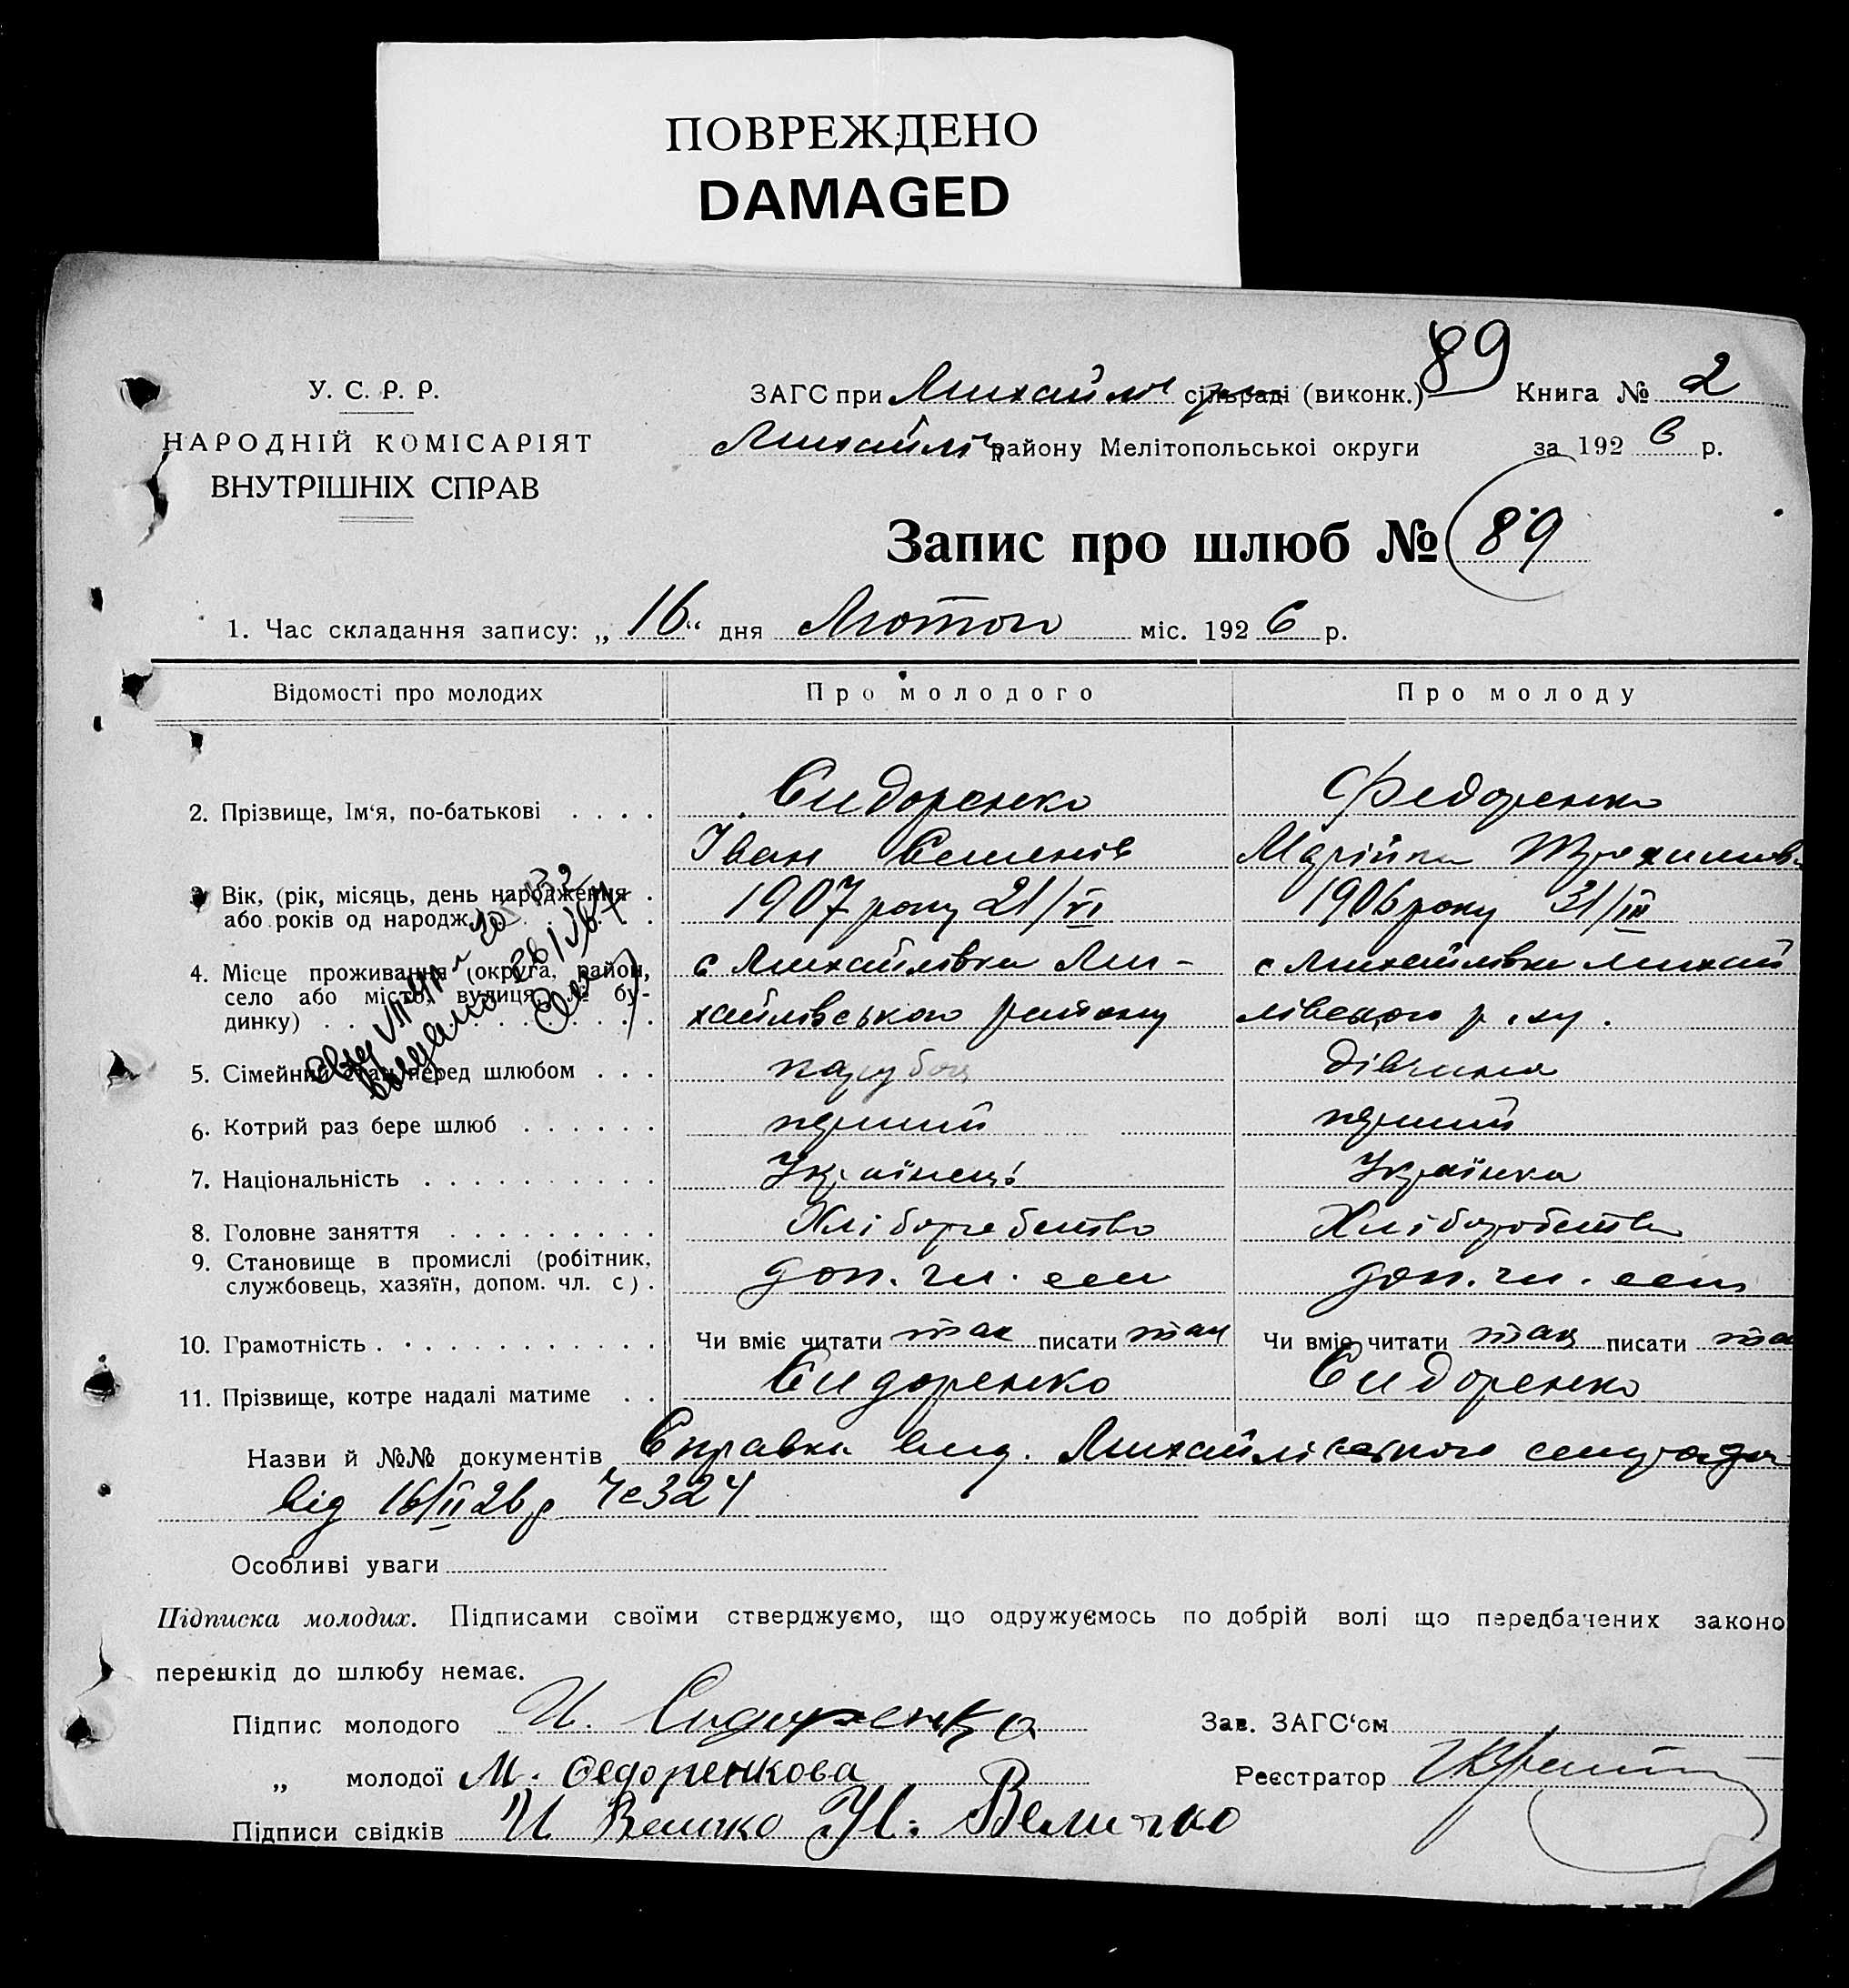 ПОВРЕЖДЕНО
DAMAGED
89
У. С. Р. Р.
НАРОДНІЙ КОМІСАРІЯТ
ВНУТРІШНІХ СПРАВ
ЗАГС при Михайлів сільраді (виконк.) Книга № 2
Михайлів району Мелітопольської округи за 192 6 р.
Запис про шлюб № 89
1. Час складання запису: „ 16 “ дня Лютого міс. 192 6 р.
Відомості про молодих Про молодого Про молоду
2. Прізвище, Ім‘я, по-батькові . . . . Сидоренко Федоренко
Іван Семенів Марійка
3. Вік, (рік, місяць, день народження .
або років од народж. 1907 року 21/VI 1906 року 31/III
4. Місце проживання (округа, район,
село або місто, вулиця, № бу-
динку) с Михайлівка Ми-
хайлівського району с Михайлівка Михай
лівського р.ну.
5. Сімейний стан перед шлюбом . . . парубок дівчина
6. Котрий раз бере шлюб . . . . . . перший перший
7. Національність . . . . . . . . . . Українець Українка
8. Головне заняття . . . . . . . . . Хліборобство Хліборобство
9. Становище в промислі (робітник,
службовець, хазяїн, допом. чл. с) . доп. чл. сем доп. чл. сем
10. Грамотність . . . . . . . . . . . Чи вміє читати так писати так Чи вміє читати так писати та
11. Прізвище, котре надалі матиме . . Сидоренко Сидоренко
Назви й №№ документів Справка вид. Михайлівського
від 16/II 26 р № 324
Особливі уваги
Підписка молодих. Підписами своїми стверджуємо, що одружуємось по добрій волі що передбачених законо
перешкід до шлюбу немає.
Підпис молодого И. Сидоренко Зав. ЗАГС‘ом
„ молодої М. Федоренкова Реєстратор
Підписи свідків И Величко И. Величко